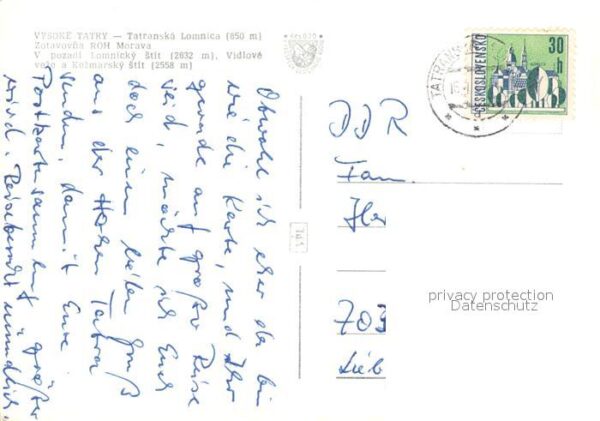 VYSOKÉ TATRY — Tatranská Lomnica (850 m)
Zotavovňa ROH Morava
V pozadí Lomnický štít (2632 m), Vidlové
veže a Kežmarský štít (2558 m)
Obwohl ich eher da bin
wie die Karte, und Ihr
gerade auf großer Reise
seid, möchte ich Euch
doch einen lieben Gruß
aus der Hohen Tatra
senden, damit Eure
Postkartensammlung größer
wird. Reisebericht mündlich.
ČESKOSLOVENSKO
30
h
TATRANSKÁ
DDR
Fam.
Her
703
Lieb
privacy protection
Datenschutz